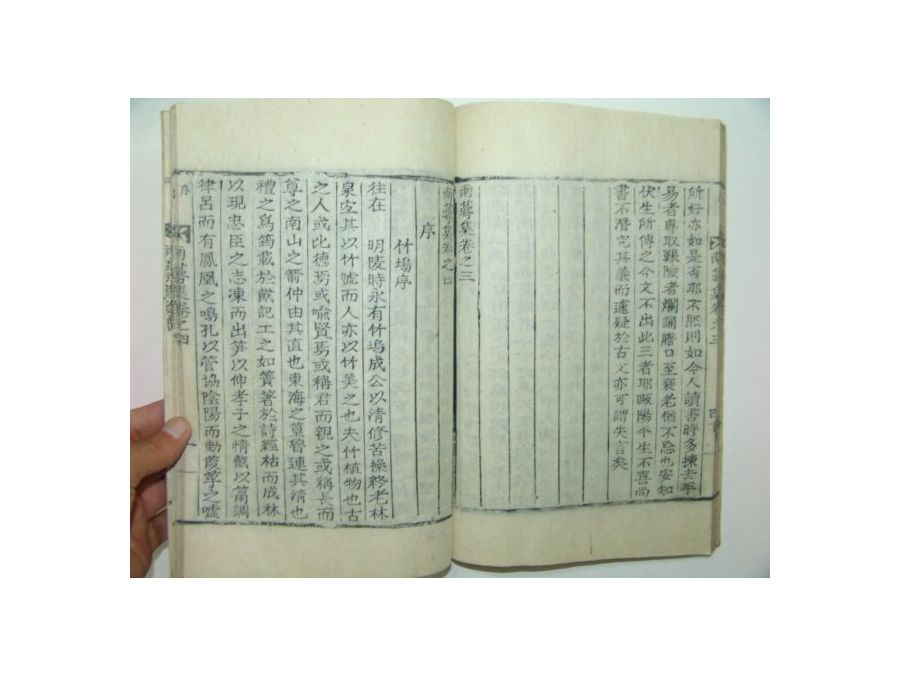 所好亦如是否耶不然則如今人讀書時多揀去平
易者專取艱險者爛誦膾口至衰老猶不忘也安知
伏生所傳之今文不出此三者耶歐陽平生不喜尚
書不潛究其義而遽疑於古文亦可謂失言矣
南蕚集卷之三
南蕚集卷之四
序
竹塢序
往在 明陵時永有竹塢成公以淸修苦操終老林
泉宜其以竹號而人亦以竹美之也夫竹植物也古
之人或比德焉或喩賢焉或稱君而親之或稱長而
尊之南山之箭仲由其直也東海之篁魯連其淸也
禮之爲筠載於戴記工之如簀著於詩經枯而成林
以現忠臣之志凍而出笋以伸孝子之情截以篇調
律呂而有鳳凰之鳴孔以管協陰陽而動葭莩之噓
南蕚集卷之四
序